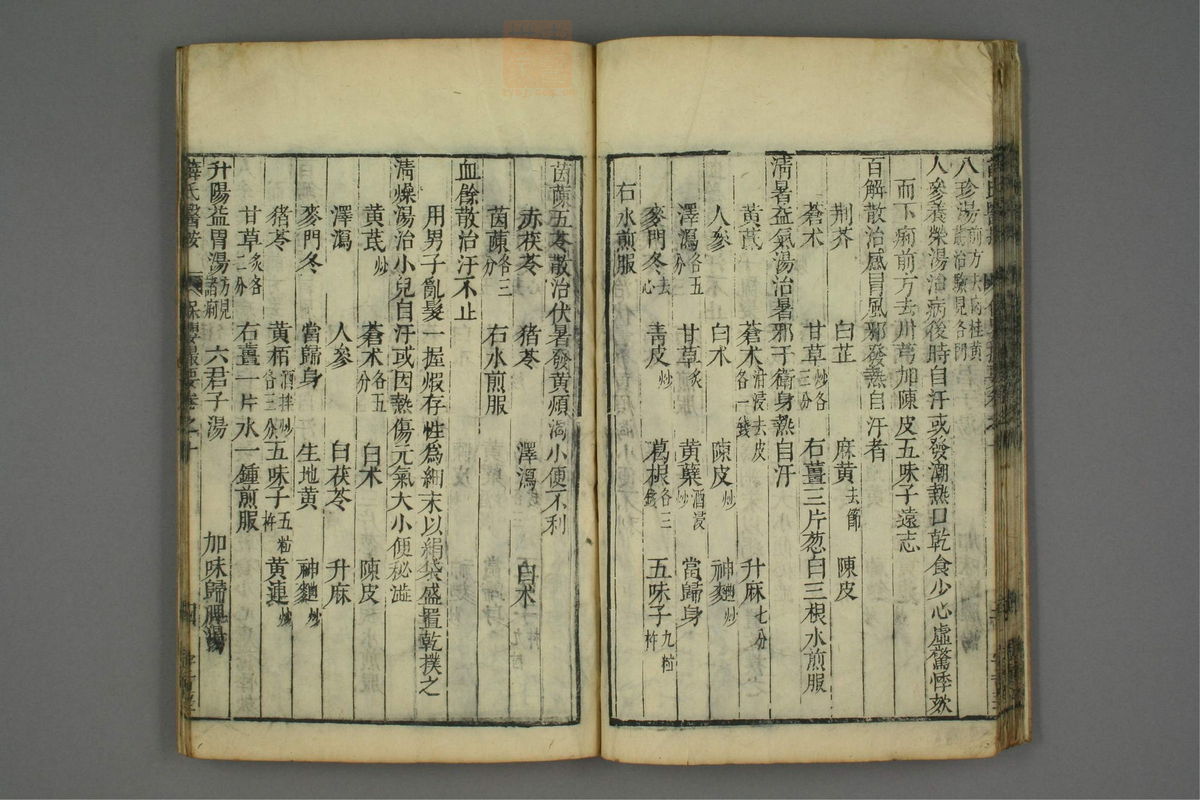 八珍湯前方去肉桂黃芪治驗見各門
人參養榮湯治病後時自汗或發潮熱口乾食少心虛驚悸欬
而下痢前方去川芎加陳皮五味子遠志
百解散治感冒風邪發熱自汗者
荊芥 白芷 麻黃去節 陳皮
蒼术 甘草炒各三分 右薑三片葱白三根水煎服
清暑益氣湯治暑邪干衛身熱自汗
黃芪 蒼术泔浸去皮各一錢 升麻七分
人參 白术 陳皮炒 神麯炒
澤瀉各五分 甘草炙 黃蘗酒浸炒 當歸身
麥門冬去心 青皮炒 葛根各三錢 五味子九粒杵
右水煎服
茵蔯五苓散治伏暑發黃煩渴小便不利
赤茯苓 猪苓 澤瀉 白术
茵蔯各三分 右水煎服
血餘散治汗不止
用男子亂髮一握煆存性爲細末以絹袋盛置乾撲之
清燥湯治小兒自汗或因熱傷元氣大小便秘澁
黃芪炒 蒼术各五分 白术 陳皮
澤瀉 人參 白茯苓 升麻
麥門冬 當歸身 生地黃 神麯炒
猪苓 黃栢酒拌炒各三分 五味子五粒杵 黃連炒
甘草炙各二分 右薑一片水一鍾煎服
升陽益胃湯方見諸痢 六君子湯 加味歸脾湯
薛氏醫按 保嬰撮要卷之十